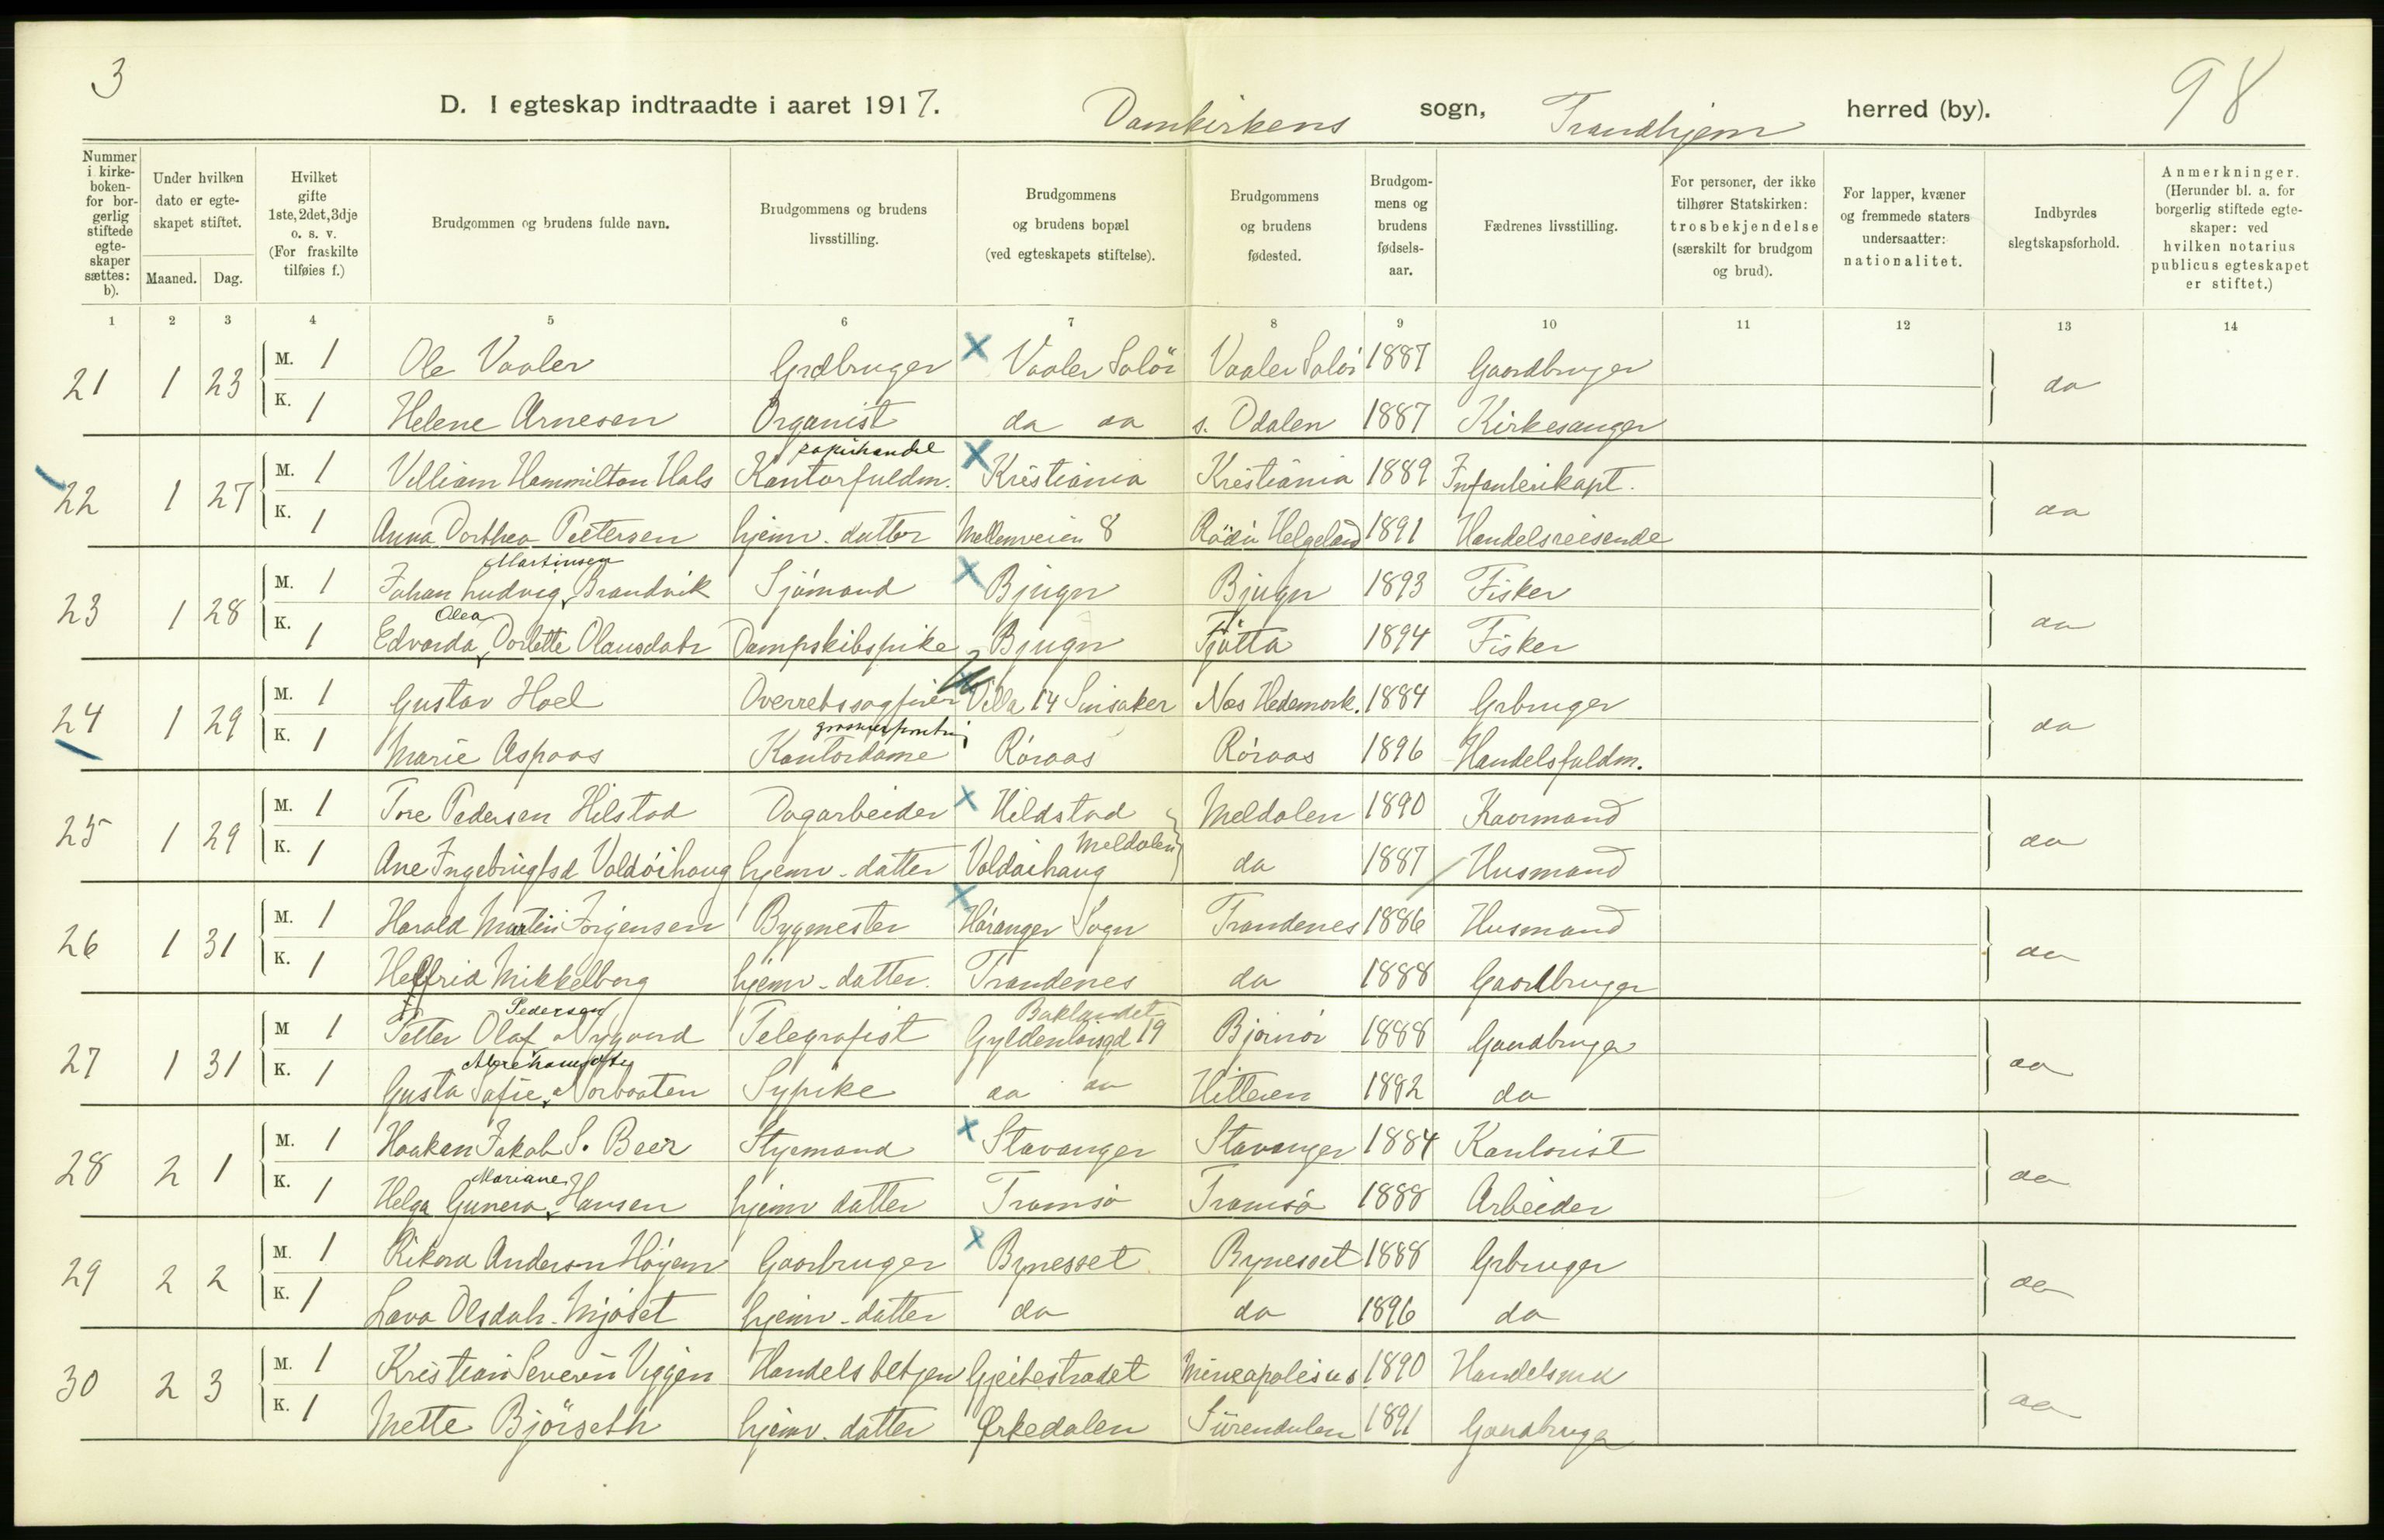 3
98
D. I egteskap indtraadte i aaret 1917. Domkirkens sogn, Trondhjem herred (by).
Nummer i kirke-boken- for bor-gerlig stiftede egte-skaper sættes: b).
Under hvilken dato er egte-skapet stiftet.
Maaned. Dag.
Hvilket gifte 1ste, 2det, 3dje o. s. v. (For fraskilte tilføies f.)
Brudgommen og brudens fulde navn.
Brudgommens og brudens livsstilling.
Brudgommens og brudens bopæl (ved egteskapets stiftelse).
Brudgommens og brudens fødested.
Brudgom-mens og brudens fødsels-aar.
Fædrenes livsstilling.
For personer, der ikke tilhører Statskirken: trosbekjendelse (særskilt for brudgom og brud).
For lapper, kvæner og fremmede staters undersaatter: nationalitet.
Indbyrdes slegtskapsforhold.
Anmerkninger. (Herunder bl. a. for borgerlig stiftede egte-skaper: ved hvilken notarius publicus egteskapet er stiftet.)
1 2 3 4 5 6 7 8 9 10 11 12 13 14
21 1 23 M. 1 Ole Vaaler Grdbruger x Vaaler Solör Vaaler Solör 1887 Gaardbruger da
K. 1 Helene Arnesen Organist da da s. Odalen 1887 Kirkesanger
papirhandel
22 1 27 M. 1 Villiam Hammilton Hals Kontorfuldm. x Kristiania Kristiania 1889 Infanterikapt. da
K. 1 Anna Dorthea Pettersen hjemv. datter Mellemveien 8 Rödö Helgeland 1891 Handelsreisende
Martinsen
23 1 28 M. 1 Johan Ludvig Brandvik Sjömand x Bjugn Bjugn 1893 Fisker da
Olea
K. 1 Edvarda Dorlette Olausdatr Dampskibspike Bjugn Tjötta 1894 Fisker
24 1 29 M. 1 Gustav Hoel Overretssagförer Villa 14 Sinsaker Nes Hedemark. 1884 Grbruger da
K. 1 Marie Aspaas Kontordame Röraas Röraas 1896 Handelsfuldm.
25 1 29 M. 1 Tore Pedersen Hilstad Dagarbeider x Hildstad Meldalen 1890 Kaarmand da
Meldalen
K. 1 Ane Ingebrigtsd Valdöihaug hjemv. datter Valdöihaug da 1887 Husmand
26 1 31 M. 1 Harald Martin Jörgensen Bygmester x Höranger Sogn Trondenes 1886 Husmand da
K. 1 Helfrid Mikkelborg hjemv. datter. Trondenes da 1888 Gaardbruger
Pedersen Baklandet
27 1 31 M 1 Petter Olaf Nygaard Telegrafist Gyldenlöisgd 19 Björnör 1888 Gaardbruger da
K. 1 Gusta Sofie Norbotten Sypike da da Hitteren 1892 da
28 2 1 M. 1 Haakon Jakob S. Beer Styrmand x Stavanger Stavanger 1884 Kontorist da
Mariane
K. 1 Helga Gunera Hansen hjemv datter Tromsö Tromsö 1888 Arbeider
29 2 2 M. 1 Rikard Anderson Höyem Gaarbruger x Bynesset Bynesset 1888 Grbruger da
K. 1 Lava Olsdatr. Mjöset hjemv. datter da da 1896 da
30 2 3 M. 1 Kristian Severin Viggen Handelsbetjen Gjeitestradet Mineapolis us 1890 Handelsmd da
K. 1 Mette Björseth hjemv. datter Ørkedalen Surendalen 1891 Gaardbruger